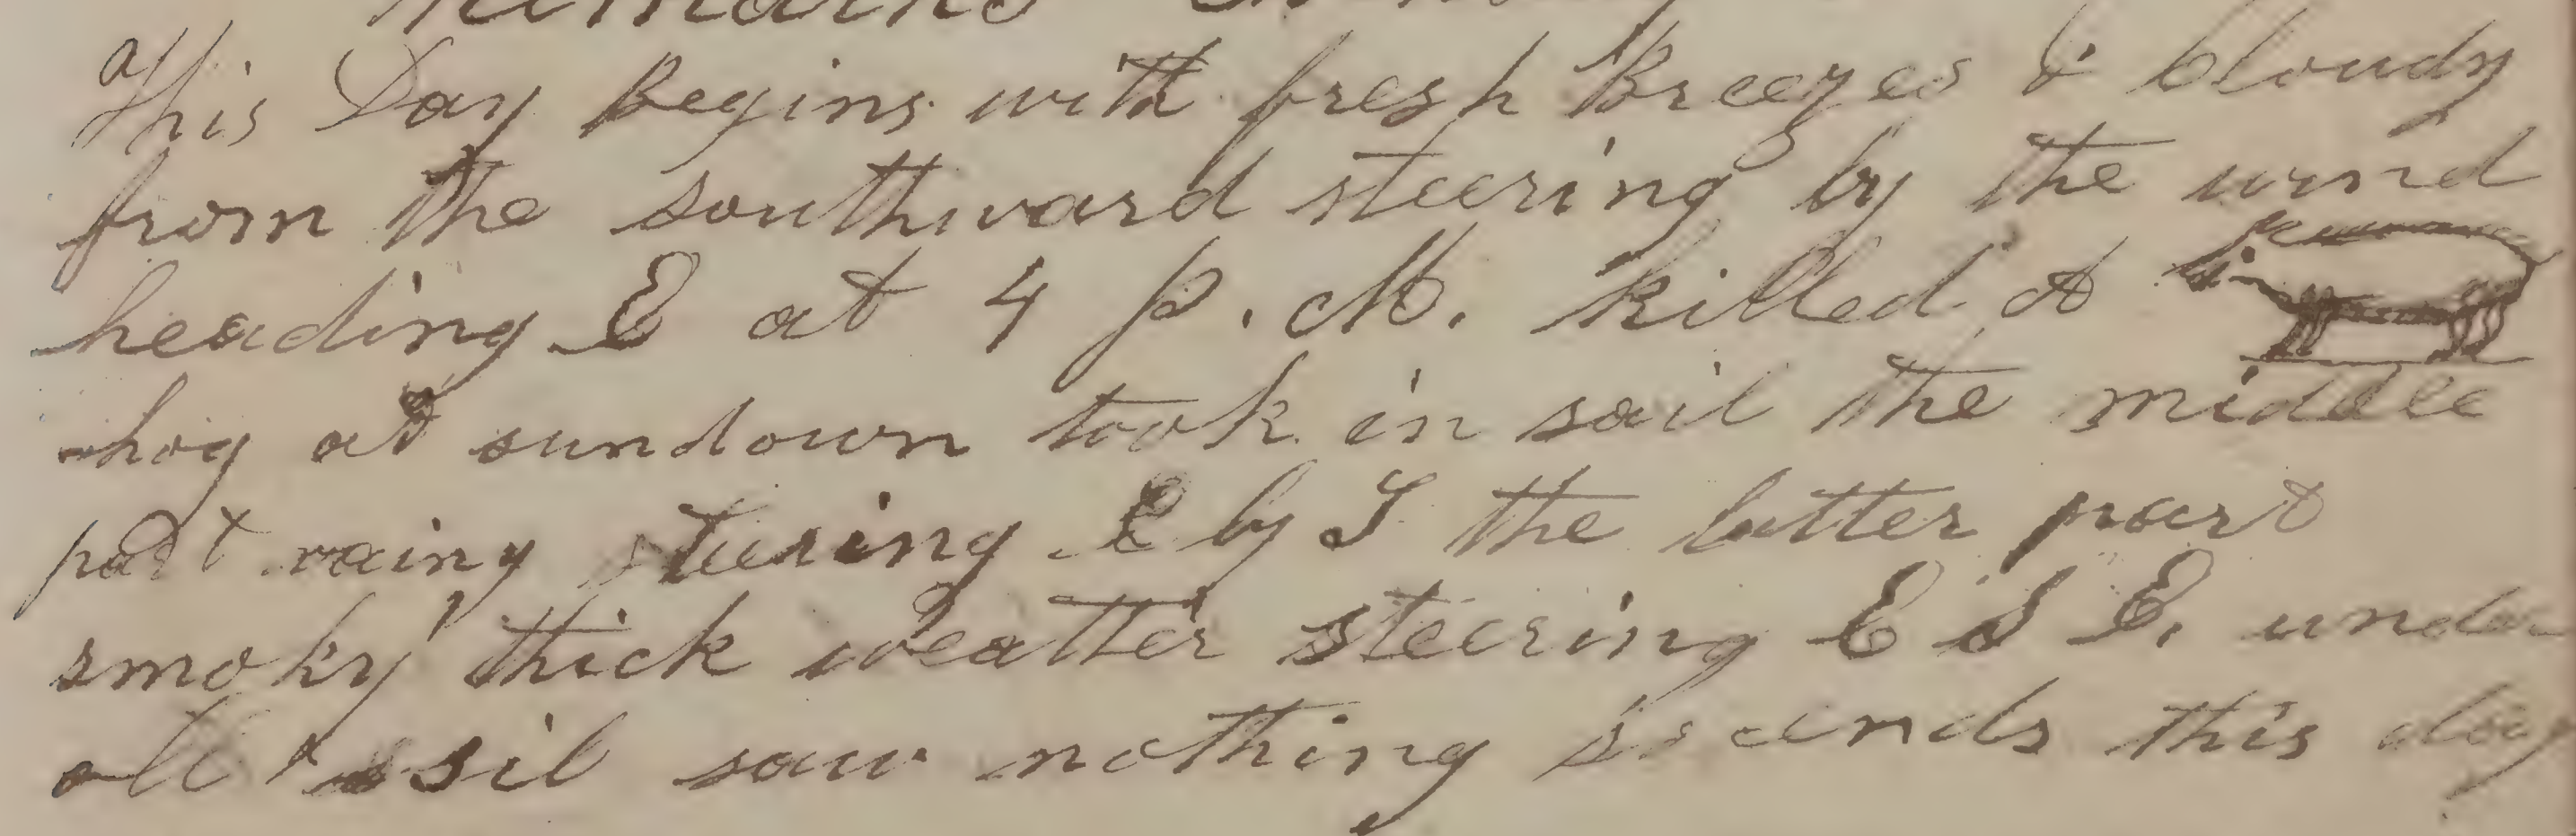 remains
This Day Begins with fresh Breezes & Cloudy
from the southward steering by the wind
heading E at 4 P. M. killed A
hog at sundown took in sail the middle
part rainy steering E by S the latter part
smoky thick weatter steering E S E. under
all sail saw nothing so ends this day